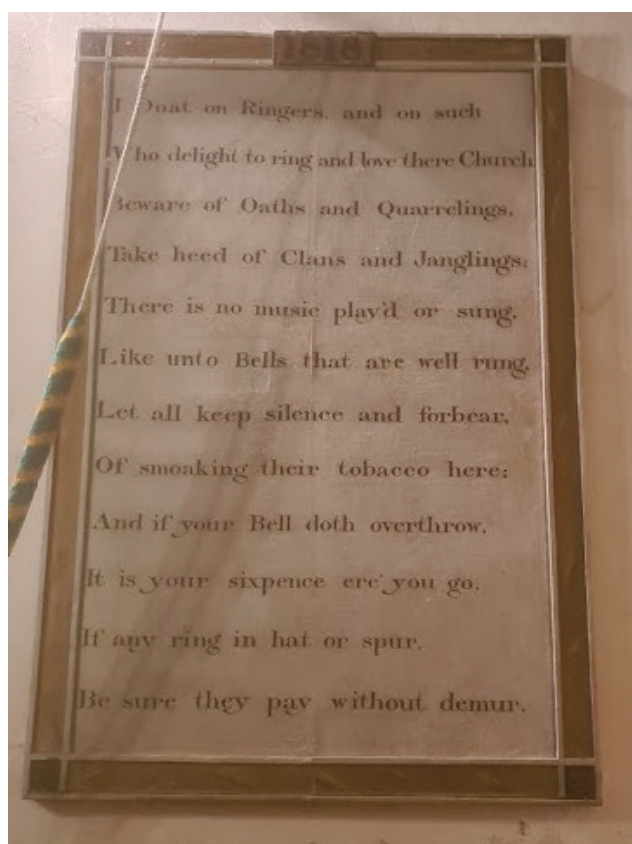 1818
I Doat on Ringers, and on such
Who delight to ring and love there Church
Beware of Oaths and Quarrelings,
Take heed of Clans and Janglings;
There is no music play'd or sung,
Like unto Bells that are well rung,
Let all keep silence and forbear,
Of smoaking their tobacco here:
And if your Bell doth overthrow,
It is your sixpence ere' you go.
If any ring in hat or spur,
Be sure they pay without demur.